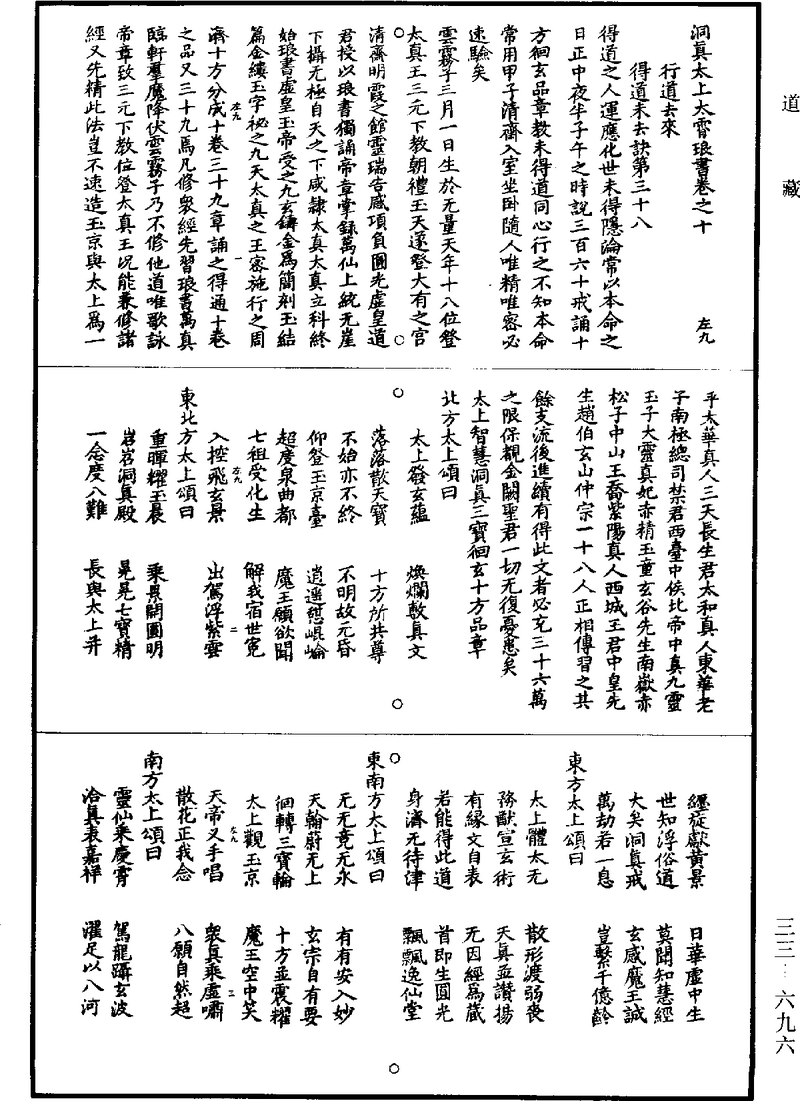 道藏
洞真太上太霄琅書卷之十
左九
行道去來
得道未去訣第三十八
得道之人運應化世未得隱淪常以本命之
日正中夜半子午之時說三百六十戒誦十
方徊玄品章教未得道同心行之不知本命
常用甲子清齋入室坐卧隨人唯精唯密必
速驗矣
雲霧子三月一日生於无量天年十八位登
太真王三元下教朝禮玉天遂登大有之宮
清齋明霞之館靈瑞告感項負圓光虛皇道
君授以琅書獨誦帝章掌錄萬仙上統无崖
下攝无極自天之下咸隸太真太真立科終
始琅書虛皇玉帝受之九玄鑄金爲簡刻玉結
篇金縷玉字祕之九天太真之王密施行之周
濟十方分成十卷三十九章誦之得通十卷
左九
一
之品又三十九焉凡修衆經先習琅書萬真
臨軒羣魔降伏雲霧子乃不修他道唯歌詠
帝章致三元下教位登太真王况能兼修諸
經又先精此法豈不速造玉京與太上爲一
乎太華真人三天長生君太和真人東華老
子南極總司禁君西臺中侯比帝中真九靈
玉子大靈真妃赤精玉童玄谷先生南嶽赤
松子中山王喬紫陽真人西城王君中皇先
生趙伯玄山仲宗一十八人正相傳習之其
餘支流後進續有得此文者必充三十六萬
之限保覩金闕聖君一切无復憂恙矣
太上智慧洞真三寶徊玄十方品章
北方太上頌曰
太上發玄蘊 煥爛敷真文
落落散天寶 十方所共尊
不始亦不終 不明故元昏
仰登玉京臺 逍遥憩崐崘
超度泉曲都 魔王願欲聞
七祖受化生 解我宿世冤
左九
入控飛玄景 出駕浮紫雲
二
東北方太上頌曰
重暉耀玉晨 乘景開圓明
岧岧洞真殿 晃晃七寶精
一念度八難 長與太上并
經旋獻黄景 日華虛中生
世知浮俗道 莫聞知慧經
大矣洞真戒 玄感魔王誠
萬劫若一息 豈繫千億齡
東方太上頌曰
太上體太无 散形渡弱喪
務猷宣玄術 天真並讚揚
有緣文自表 无因經爲藏
若能得此道 首即生圓光
身濟无待津 飄飄逸仙堂
東南方太上頌曰
无无竟无永 有有安入妙
天翰蔚无上 玄宗自有要
徊轉三寶輪 十方並震耀
太上觀玉京 魔王空中笑
左九
天帝叉手唱 衆真乘虛嘯
二
散花正我念 八願自然超
南方太上頌曰
靈仙乘慶霄 駕龍躡玄波
洽真表嘉祥 濯足以八河
三三—六九六